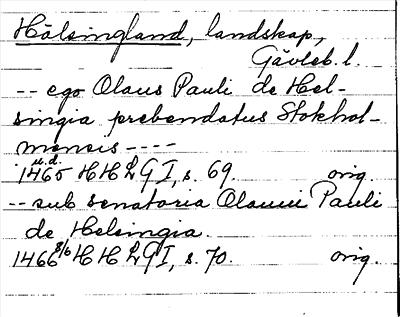 Hälsingland, landskap,
Gävleb. l.
-- ego Olaus Pauli de Hel-
singia prebendatus Stokhol-
mensis ----
u.d.
1465 HHLGI, s. 69. orig.
-- sub senatoria Olavui Pauli
de Helsingia.
1466 8/6 HHLGI, s. 70. orig.